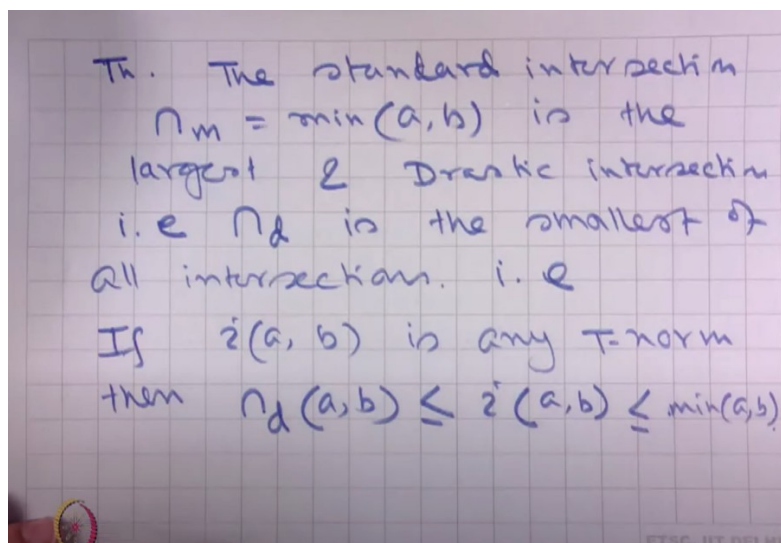 Th. The standard intersection
∩m = min(a,b) is the
largest & Drastic intersection
i.e ∩d is the smallest of
all intersections. i.e
If i(a, b) is any T-norm
then ∩d(a,b) ≤ i(a,b) ≤ min(a,b).
ETSC, IIT DELHI